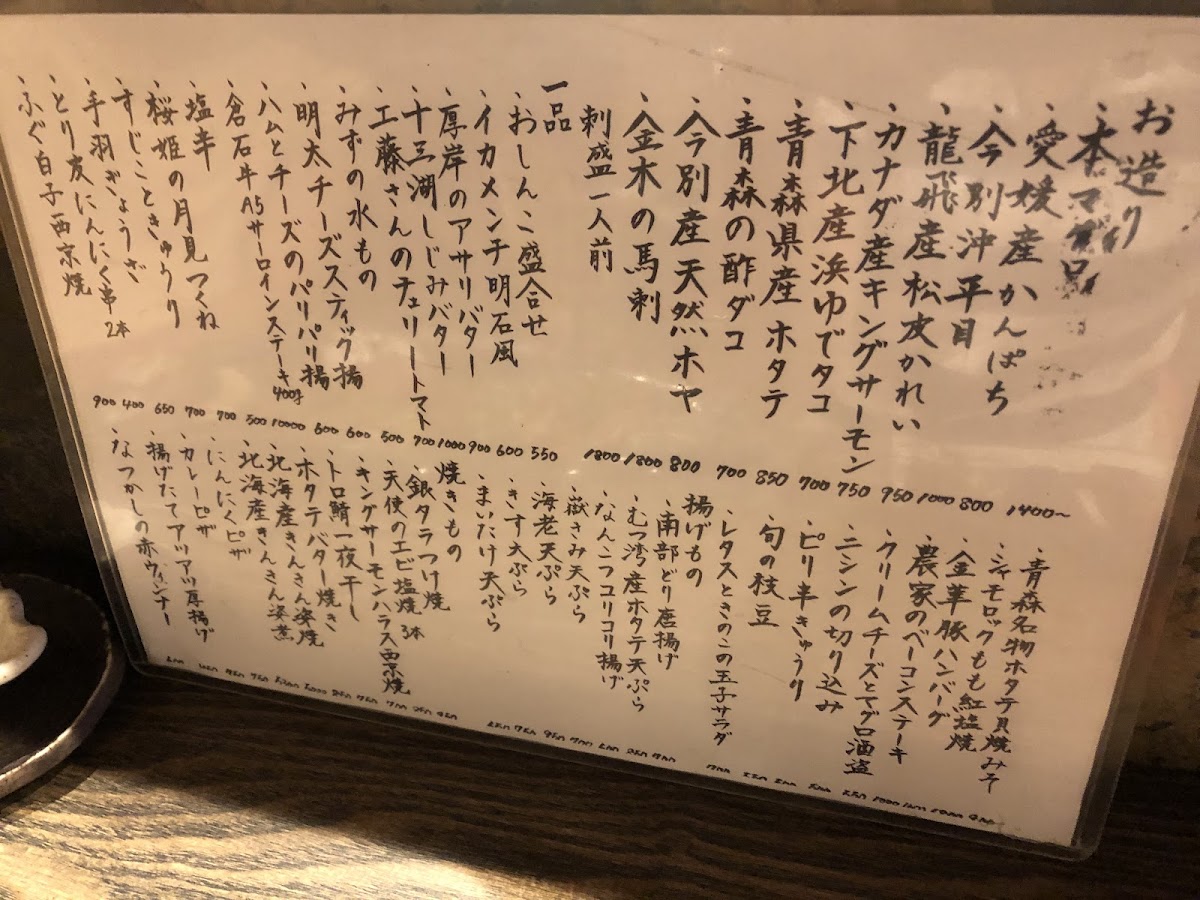 お造り
・本マグロ 1400～
・愛媛産かんぱち 800
・今別沖平目 1000
・龍飛産松皮かれい 950
・カナダ産キングサーモン 750
・下北産浜ゆでタコ 700
・青森県産ホタテ 850
・青森の酢ダコ 700
・今別産天然ホヤ 800
・金木の馬刺 1800
刺盛一人前 1800
一品
・おしんこ盛合せ 550
・イカメンチ明石風 600
・厚岸のアサリバター 900
・十三湖しじみバター 1000
・工藤さんのチュリートマト 700
・みずの水もの 500
・明太チーズスティック揚 600
・ハムとチーズのパリパリ揚 600
・倉石牛A5サーロインステーキ400g 10000
・塩辛 500
・桜姫の月見つくね 700
・すじこときゅうり 700
・手羽ぎょうざ 650
・とり皮にんにく串2本 400
・ふぐ白子西京焼 900
・青森名物ホタテ貝焼みそ
・シャモロックもも紅塩焼
・金華豚ハンバーグ
・農家のベーコンステーキ
・クリームチーズとマグロ酒盗
・ニシンの切り込み
・ピリ辛きゅうり
・旬の枝豆
・レタスときのこの玉子サラダ
揚げもの
・南部どり唐揚げ
・むつ湾産ホタテ天ぷら
・なんこつコリコリ揚げ
・嶽きみ天ぷら
・海老天ぷら
・きす天ぷら
・まいたけ天ぷら
焼きもの
・銀タラつけ焼
・天使のエビ塩焼3本
・キングサーモンハラス西京焼
・トロ鯖一夜干し
・ホタテバター焼き
・北海産きんきん姿焼
・北海産きんきん姿煮
・にんにくピザ
・カレーピザ
・揚げたてアツアツ厚揚げ
・なつかしの赤ウィンナー